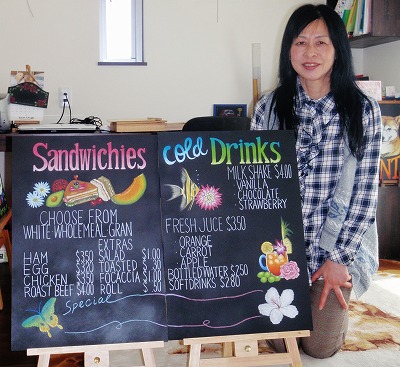 Sandwichies
CHOOSE FROM
WHITE WHOLEMEAL GRAN
EXTRAS
HAM $3.50 SALAD $1.00
EGG TOASTED
CHICKEN FOCACCIA
ROAST BEEF $4.00 ROLL .50
Special
Cold Drinks
MILK SHAKE $4.00
VANILLA
CHOCOLATE
STRAWBERRY
FRESH JUICE $3.50
ORANGE
CARROT
APPLE
BOTTLED WATER $2.50
SOFTDRINKS $2.80